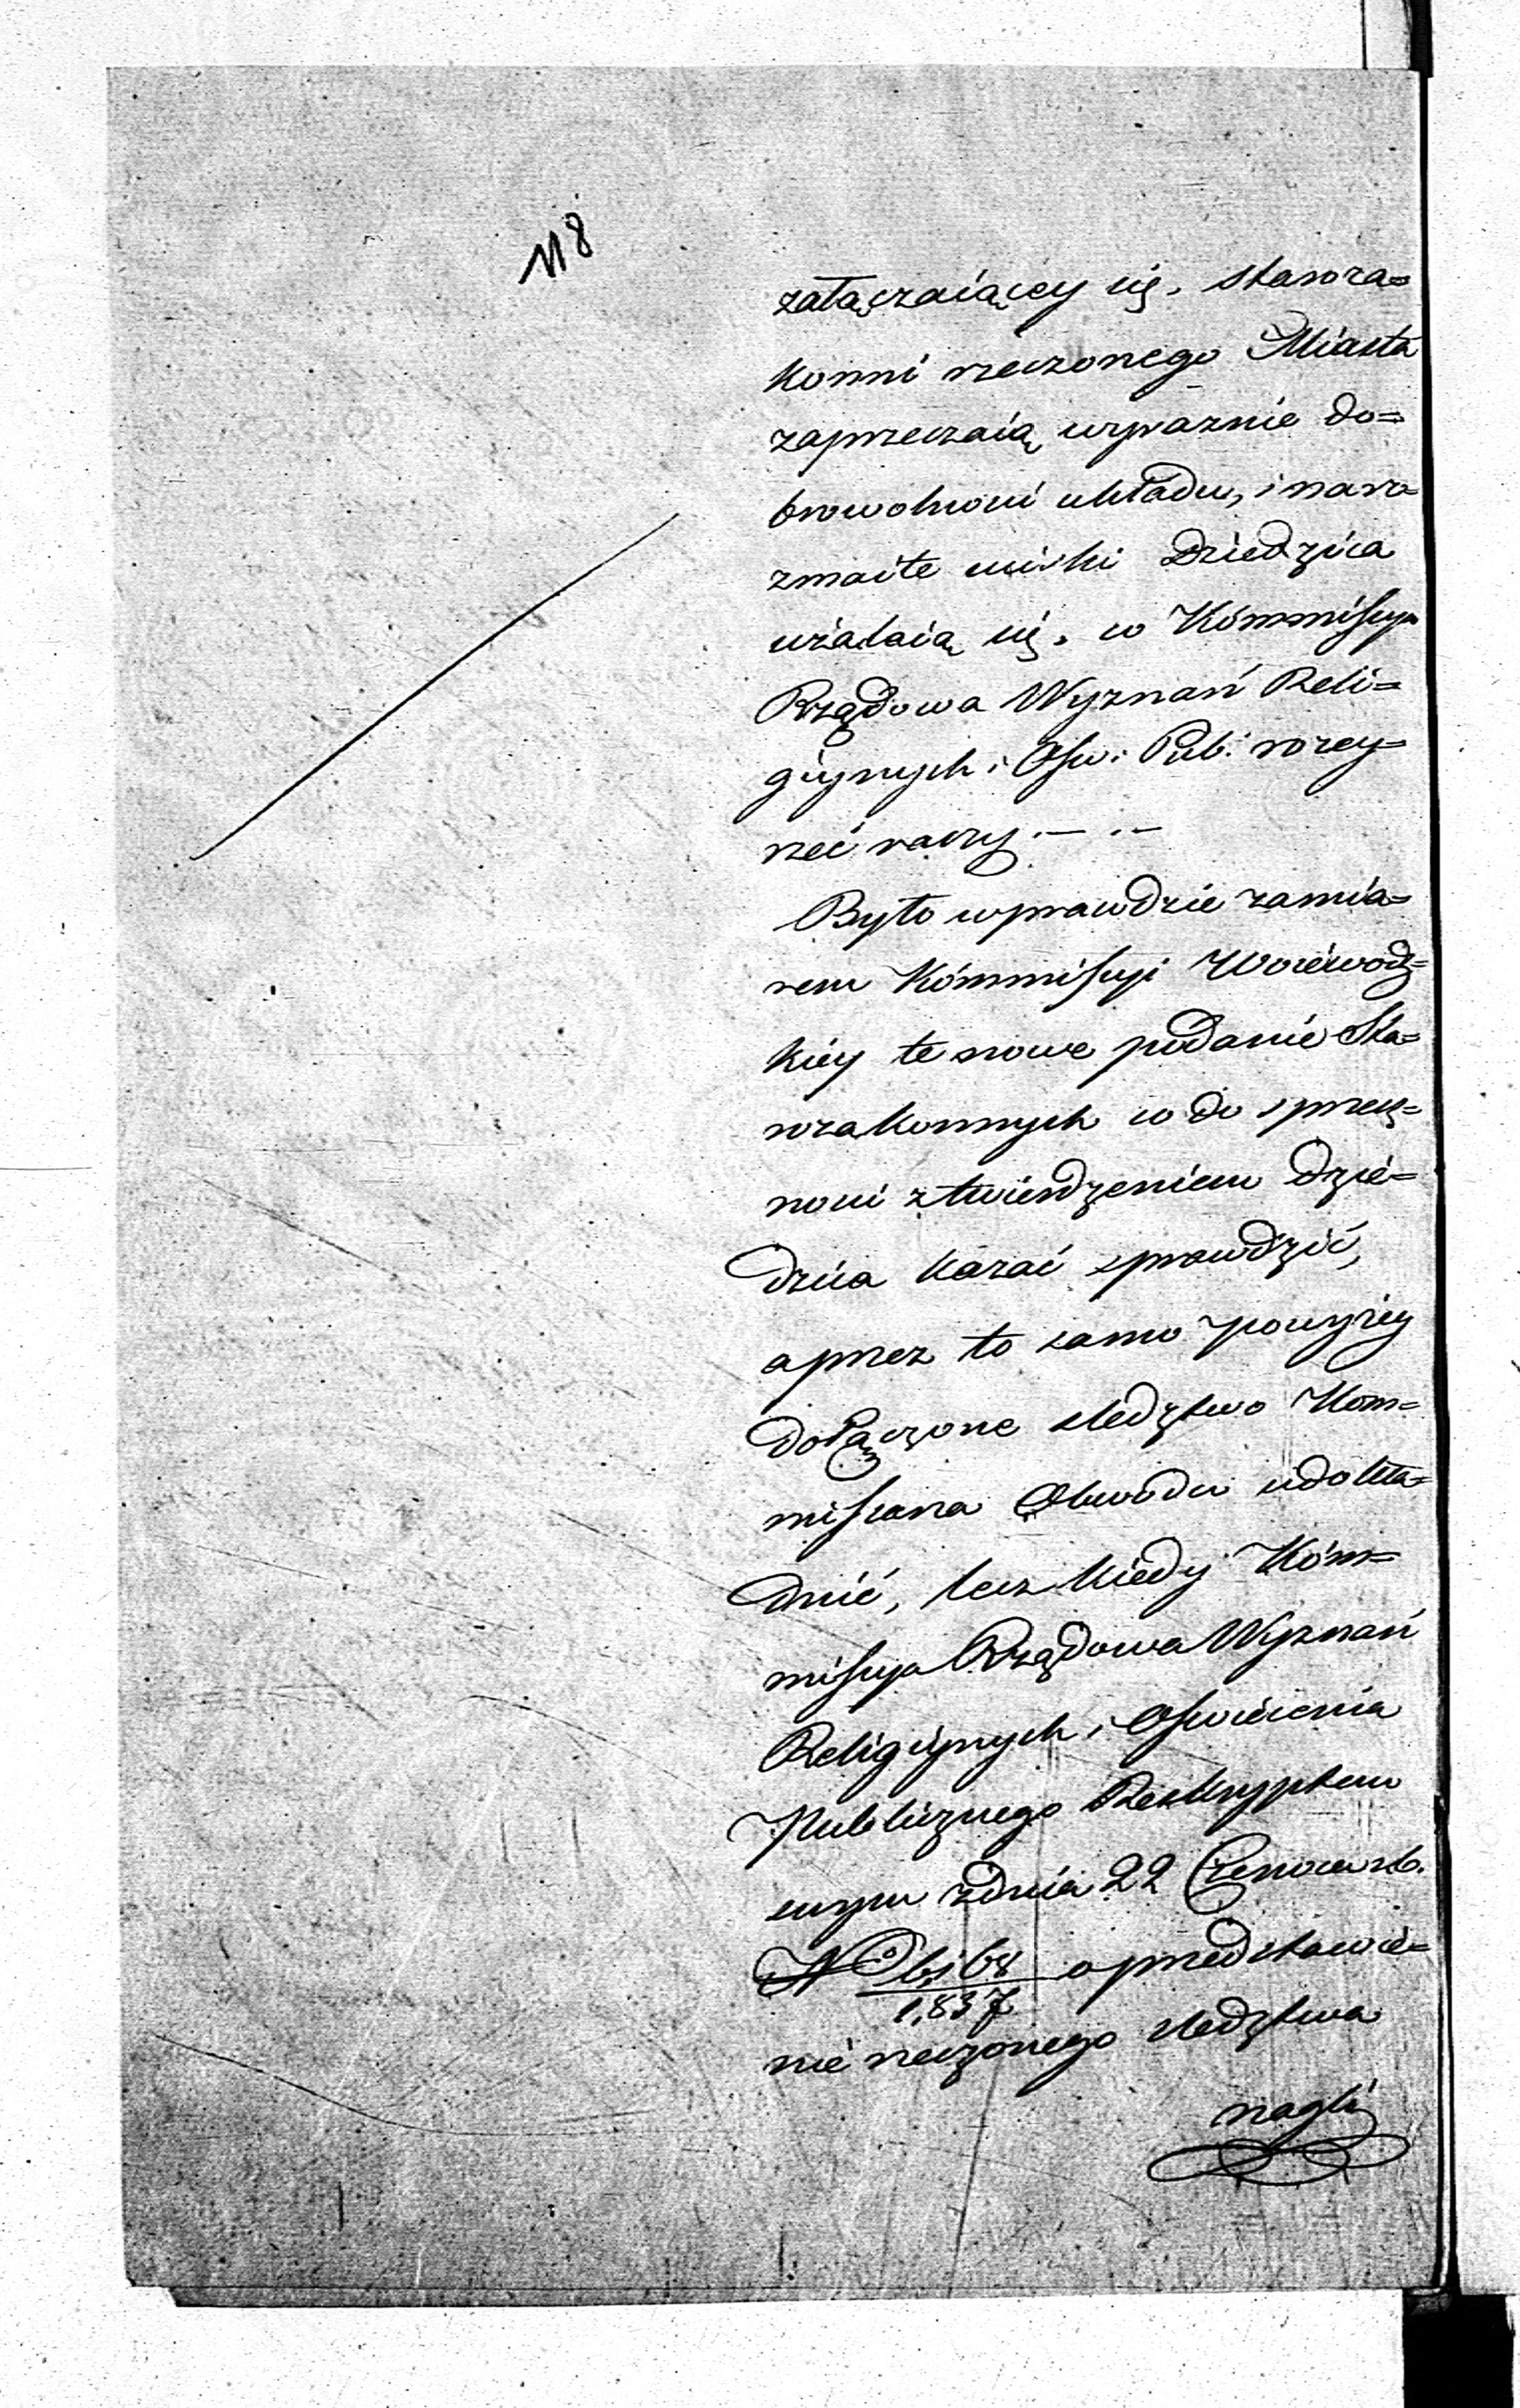 118
załączaiącey się, starоza=
konni rzeczonego Miasta
zaprzeczaią wyraznie do=
browolności układu, i na ro=
zmaite uciski Dziedzica
użalaią się, co Kommissya
Rządowa Wyznań Reli=
giynych i Ośw: Pub: rozey=
rzeć raczy. — . —
Było wprawdzie zamia=
rem Kommissyi Woiewodz=
kiey te nowe podanie Sta=
rozakonnych co do sprzecz=
ności z twierdzeniem Dzie=
dzica kazać sprawdzić,
a przez to samo powyżey
dołączone sledztwo Kom=
missarza Obwodu udokła=
dnić, lecz kiedy Kom=
missya Rządowa Wyznań
Religiynych i Oświecenia
Publicznego Reskryptem
swym z dnia 22 Czerwca r.b.
N
1,837
o przedstawie=
nie rzeczonego sledztwa
nagli